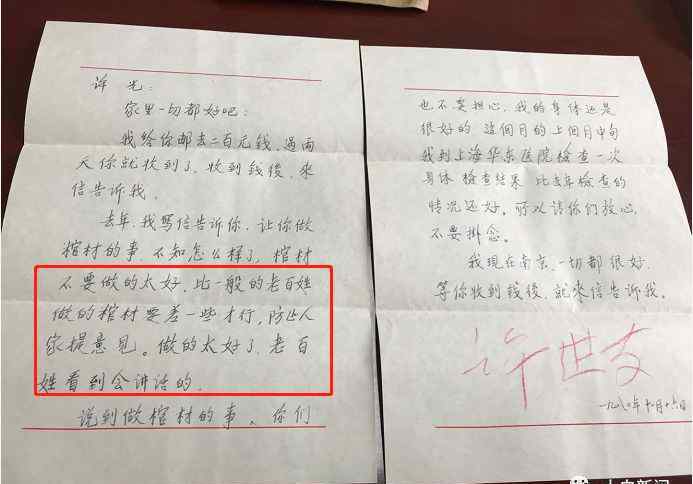 许光：
家里一切都好吧：
我给你邮去二百元钱，过两
天你就收到了，收到钱後，来
信告诉我。
去年，我写信告诉你，让你做
棺材的事，不知怎么样了，棺材
不要做的太好，比一般的老百姓
做的棺材要差一些才行，防止人
家提意见。做的太好了，老百
姓看到会讲话的。
说到做棺材的事，你们
也不要担心，我的身体还是
很好的 这個月的上個月中旬
我到上海华东医院检查一次
身体 检查结果 比去年检查的
情况还好，可以请你们放心，
不要掛念。
我现在南京，一切都很好，
等你收到钱後，就来信告诉我。
许世友
一九八〇年十月十六日